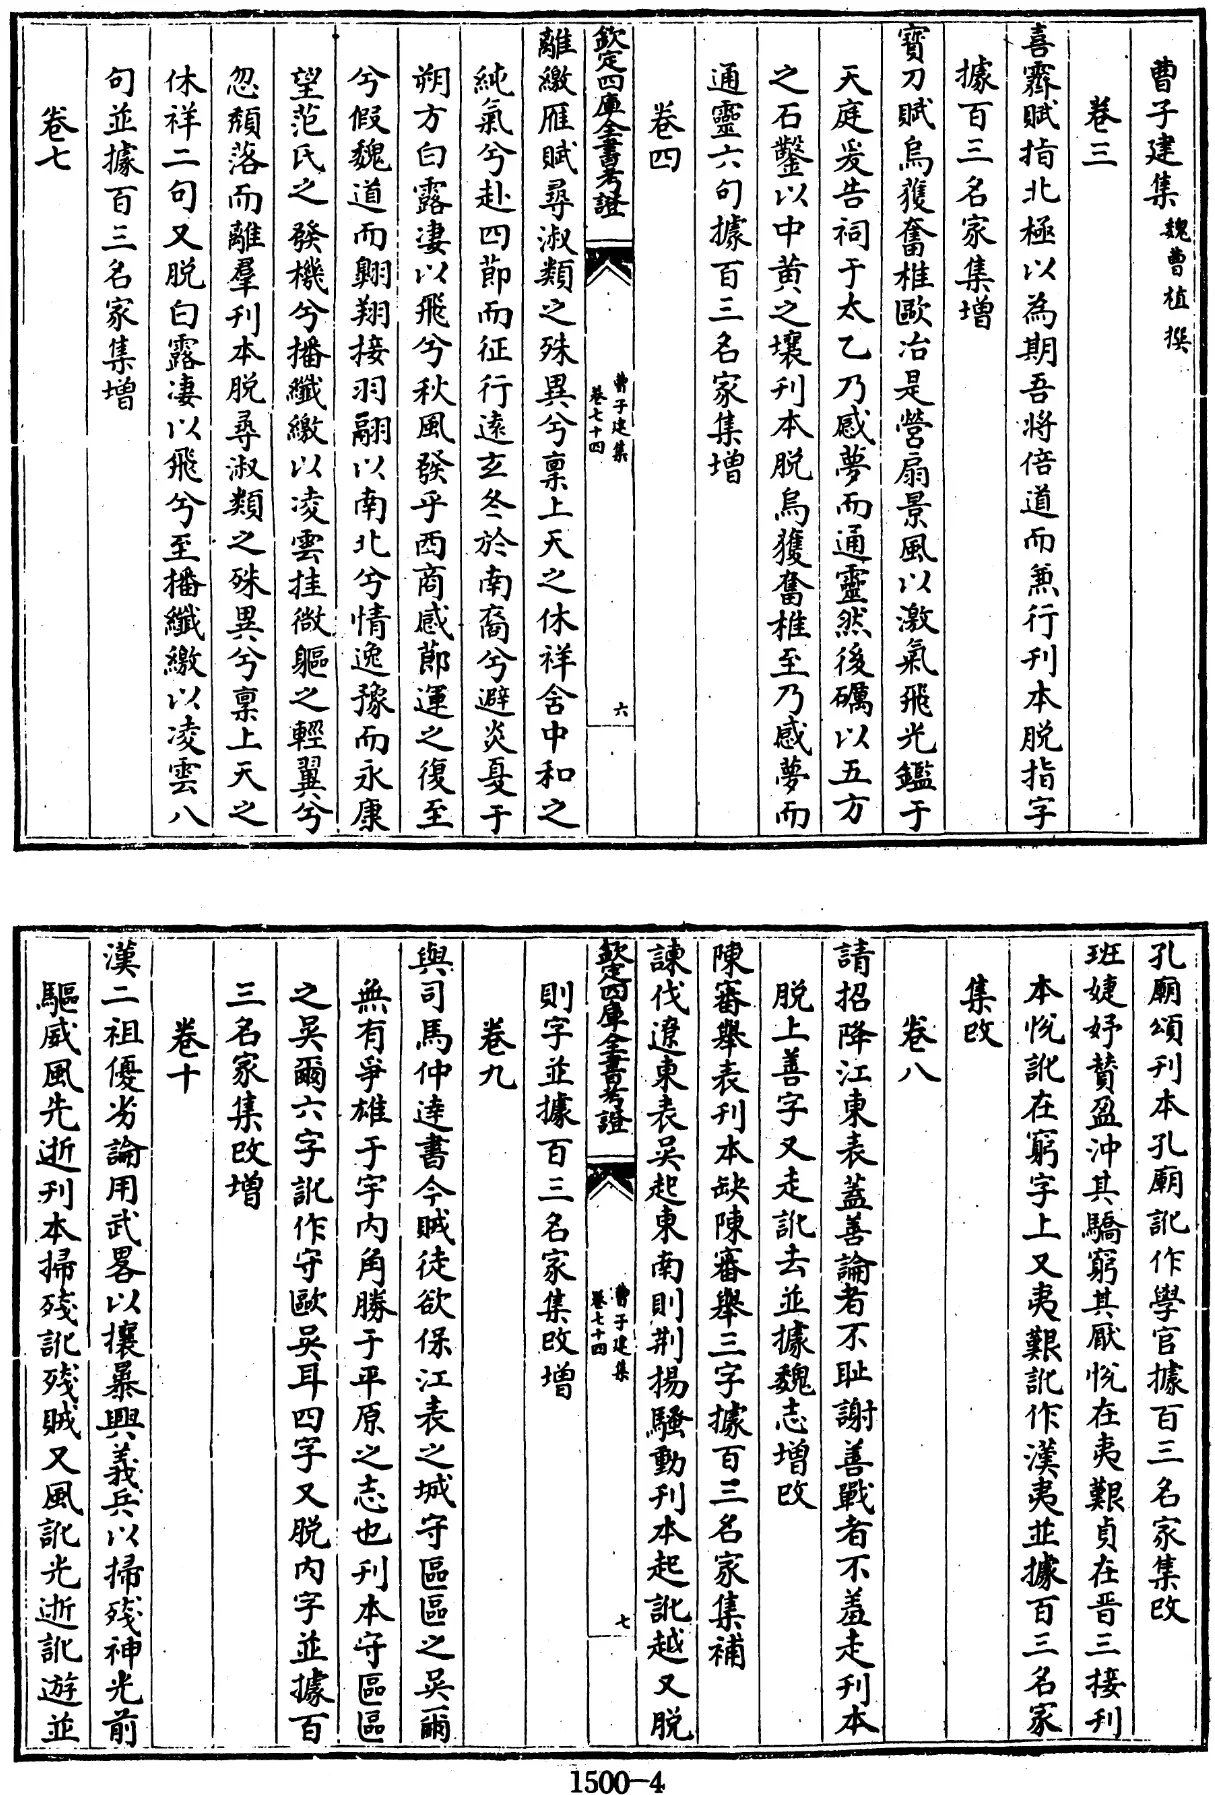 曹子建集魏曹植撰
卷三
喜霽賦指北極以為期吾將倍道而兼行刊本脫指字
據百三名家集增
寶刀賦烏獲奮椎歐冶是營扇景風以激氣飛光鑑于
天庭爰告祠于太乙乃感夢而通靈然後礪以五方
之石鑿以中黃之壤刊本脫烏獲奮椎至乃感夢而
通靈六句據百三名家集增
卷四
欽定四庫全書考證
曹子建集
卷七十四
六
離繳雁賦尋淑類之殊異兮稟上天之休祥含中和之
純氣兮赴四節而征行遠玄冬於南裔兮避炎夏于
朔方白露凄以飛兮秋風發乎西商感節運之復至
兮假魏道而翺翔接羽翮以南北兮情逸豫而永康
望范氏之發機兮播纖繳以凌雲挂微軀之輕翼兮
忽頹落而離羣刊本脫尋淑類之殊異兮稟上天之
休祥二句又脫白露凄以飛兮至播纖繳以凌雲八
句並據百三名家集增
卷七
孔廟頌刊本孔廟訛作學官據百三名家集改
班婕妤贊盈沖其驕窮其厭悅在夷艱貞在晋三接刊
本悅訛在窮字上又夷艱訛作漢夷並據百三名家
集改
卷八
請招降江東表蓋善論者不恥謝善戰者不羞走刊本
脫上善字又走訛去並據魏志增改
陳審舉表刊本缺陳審舉三字據百三名家集補
諫伐遼東表吴起東南則荆揚騷動刊本起訛越又脫
欽定四庫全書考證
曹子建集
卷七十四
七
則字並據百三名家集改增
卷九
與司馬仲達書今賊徒欲保江表之城守區區之吴爾
無有爭雄于宇內角勝于平原之志也刊本守區區
之吴爾六字訛作守歐吴耳四字又脫內字並據百
三名家集改增
卷十
漢二祖優劣論用武畧以攘暴興義兵以掃殘神光前
驅威風先逝刊本掃殘訛殘賊又風訛光逝訛遊並
1500-4